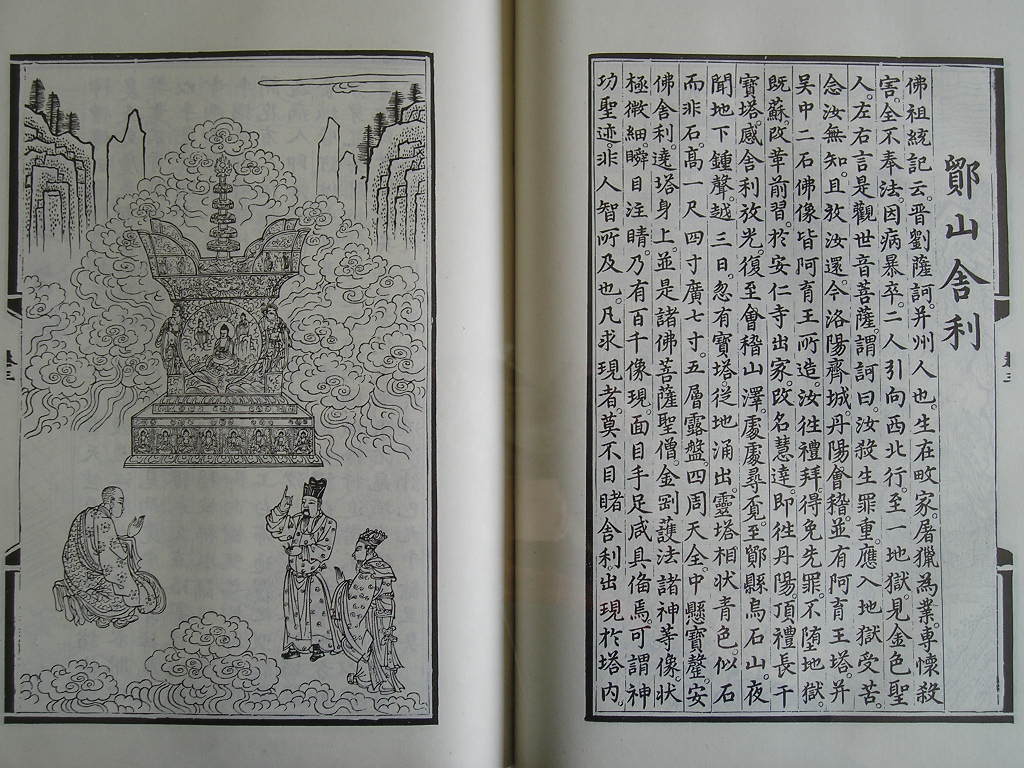 鄮山舍利
佛祖統記云。晋劉薩訶。并州人也。生在畋家。屠獵為業。專懷殺
害。全不奉法。因病暴卒。二人引向西北行。至一地獄。見金色聖
人。左右言是觀世音菩薩。謂訶曰。汝殺生罪重。應入地獄受苦。
念汝無知。且放汝還。今洛陽齊城。丹陽會稽。並有阿育王塔。并
吴中二石佛像。皆阿育王所造。汝往禮拜。得免先罪。不堕地獄。
既蘇。改革前習。於安仁寺出家。改名慧達。即往丹陽。頂禮長干
寶塔。感舍利放光。復至會稽山澤。處處尋覓。至鄮縣烏石山。夜
聞地下鍾聲。越三日。忽有寶塔。從地涌出。靈塔相状青色。似石
而非石。高一尺四寸。廣七寸。五層露盤。四周天全。中懸寶磬。安
佛舍利。遶塔身上。並是諸佛菩薩聖僧。金剛護法諸神等像。状
極微細。瞬目注睛。乃有百千像現。面目手足咸具偹焉。可謂神
功聖迹。非人智所及也。凡求現者。莫不目睹舍利。出現於塔内。
卷三